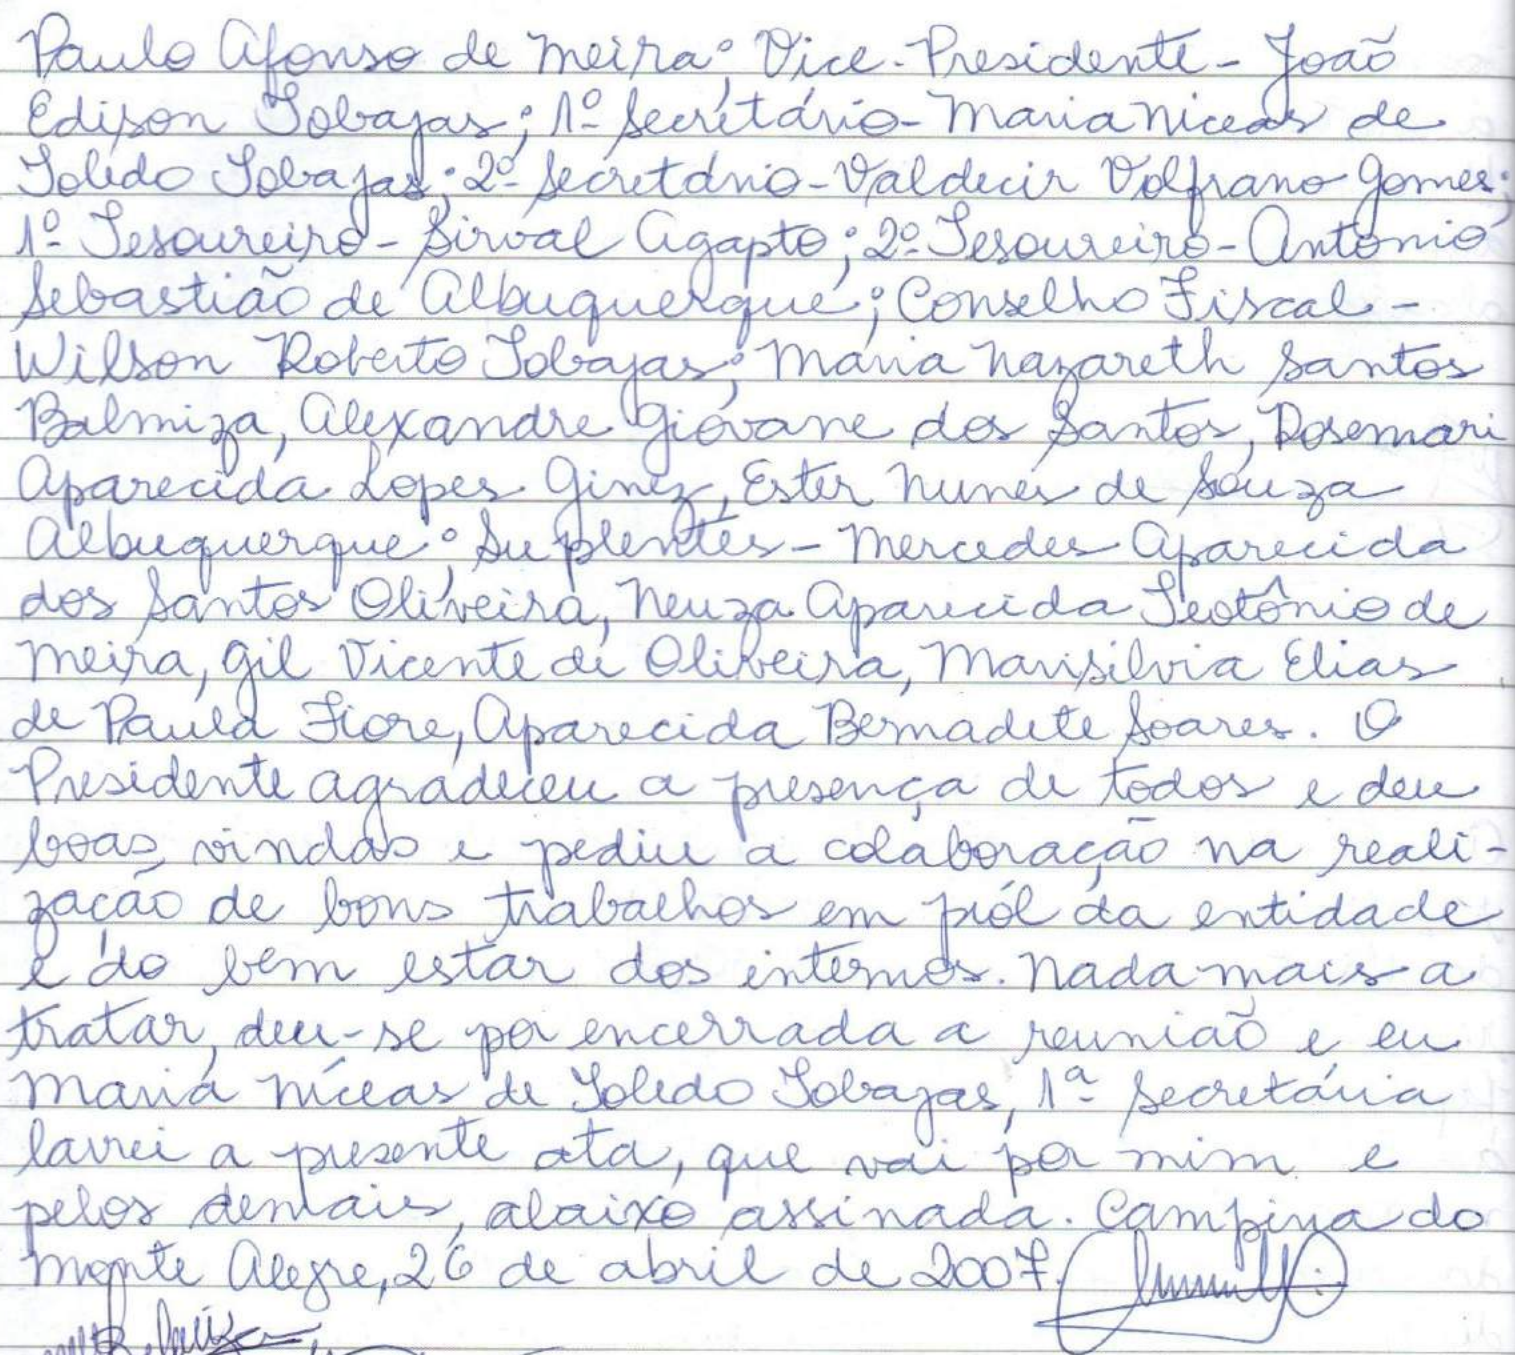 Paulo Afonso de Meira; Vice-Presidente - João
Edison Tobajas; 1º Secretário - Maria Niceas de
Toledo Tobajas; 2º Secretário - Valdecir Volfrano Gomes;
1º Tesoureiro - Sirval Agapto; 2º Tesoureiro - Antonio
Sebastião de Albuquerque; Conselho Fiscal -
Wilson Roberto Tobajas; Maria Nazareth Santos
Balmiza, Alexandre Giovane dos Santos, Rosemari
Aparecida Lopes Ginez, Ester Nunes de Souza
Albuquerque; Suplentes - Mercedes Aparecida
dos Santos Oliveira, Neuza Aparecida Teotônio de
Meira, Gil Vicente de Oliveira, Marisilvia Elias
de Paula Fiore, Aparecida Bernadete Soares. O
Presidente agradeceu a presença de todos e deu
boas vindas e pediu a colaboração na reali-
zação de bons trabalhos em pról da entidade
e do bem estar dos internos. Nada mais a
tratar, deu-se por encerrada a reunião e eu
Maria Níceas de Toledo Tobajas, 1ª Secretária
lavrei a presente ata, que vai por mim e
pelos demais, abaixo assinada. Campina do
Monte Alegre, 26 de abril de 2007.